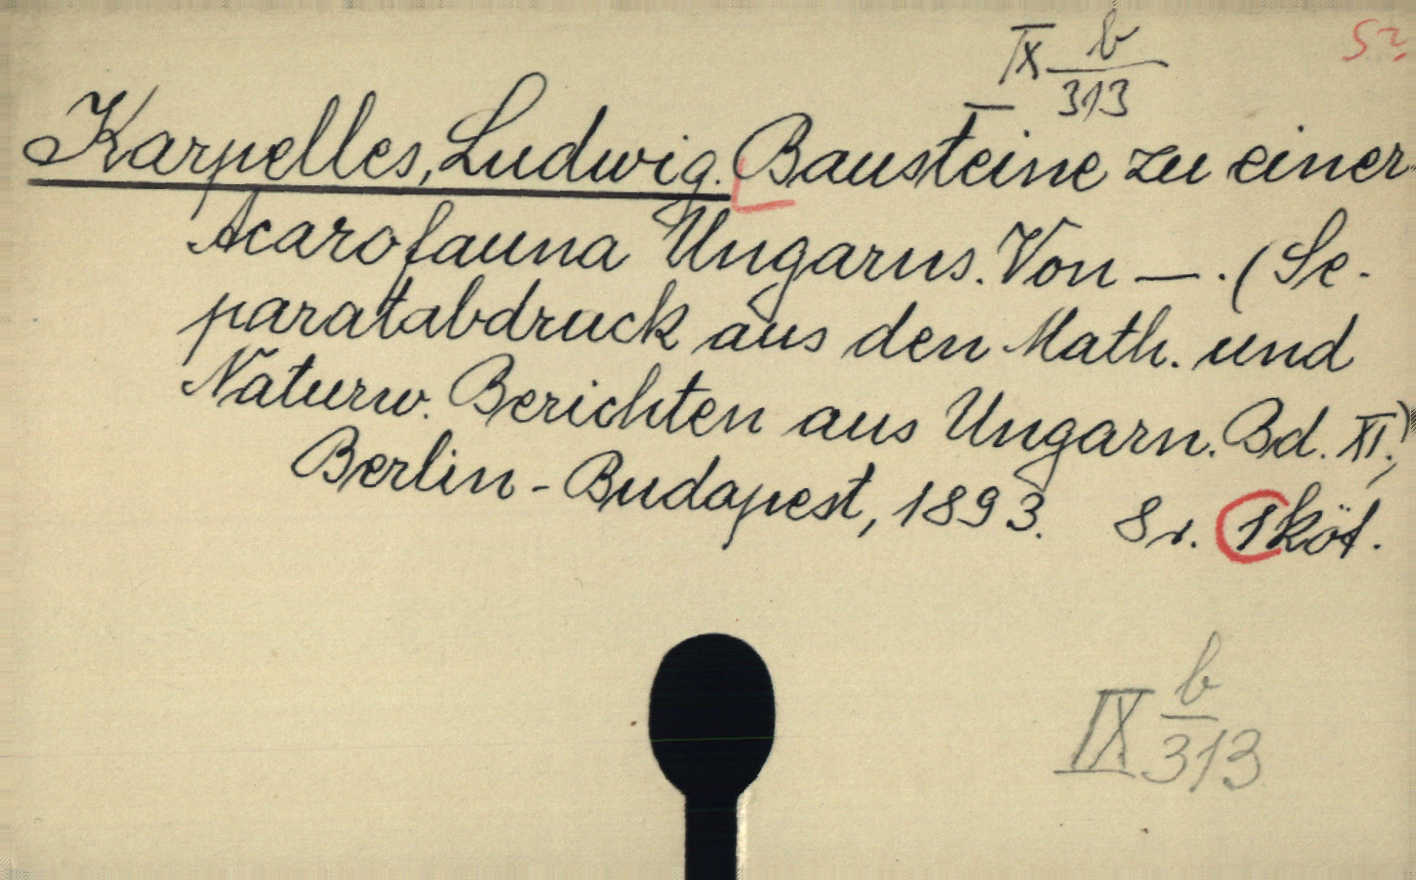 IX b
313
S?
Karpelles, Ludwig. Bausteine zu einer
Acarofauna Ungarns. Von —. (Se-
paratabdruck aus den Math. und
Naturw. Berichten aus Ungarn. Bd. XI.)
Berlin - Budapest, 1893. 8r. 1 köt.
IX b
313